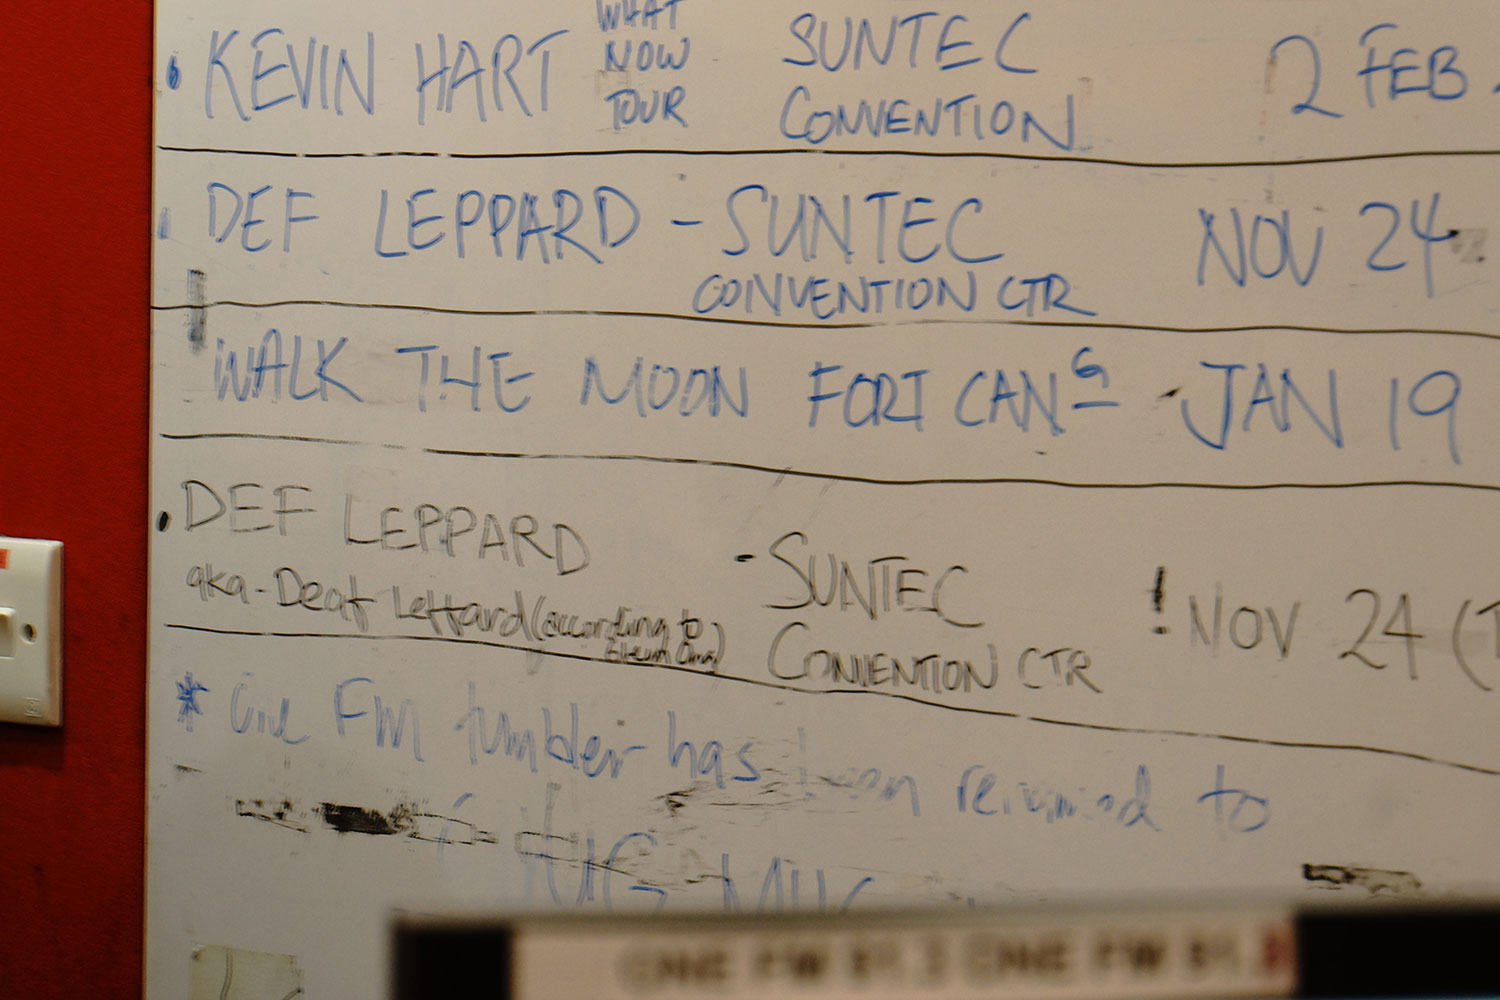 KEVIN HART WHAT NOW TOUR SUNTEC CONVENTION 2 FEB
DEF LEPPARD - SUNTEC CONVENTION CTR NOV 24
WALK THE MOON FORT CANG JAN 19
DEF LEPPARD - SUNTEC ! NOV 24 (
aka - Deaf Leffard (according to CONVENTION CTR
* One FM tumbler has been to
ONE FM 91.3 ONE FM 91.3